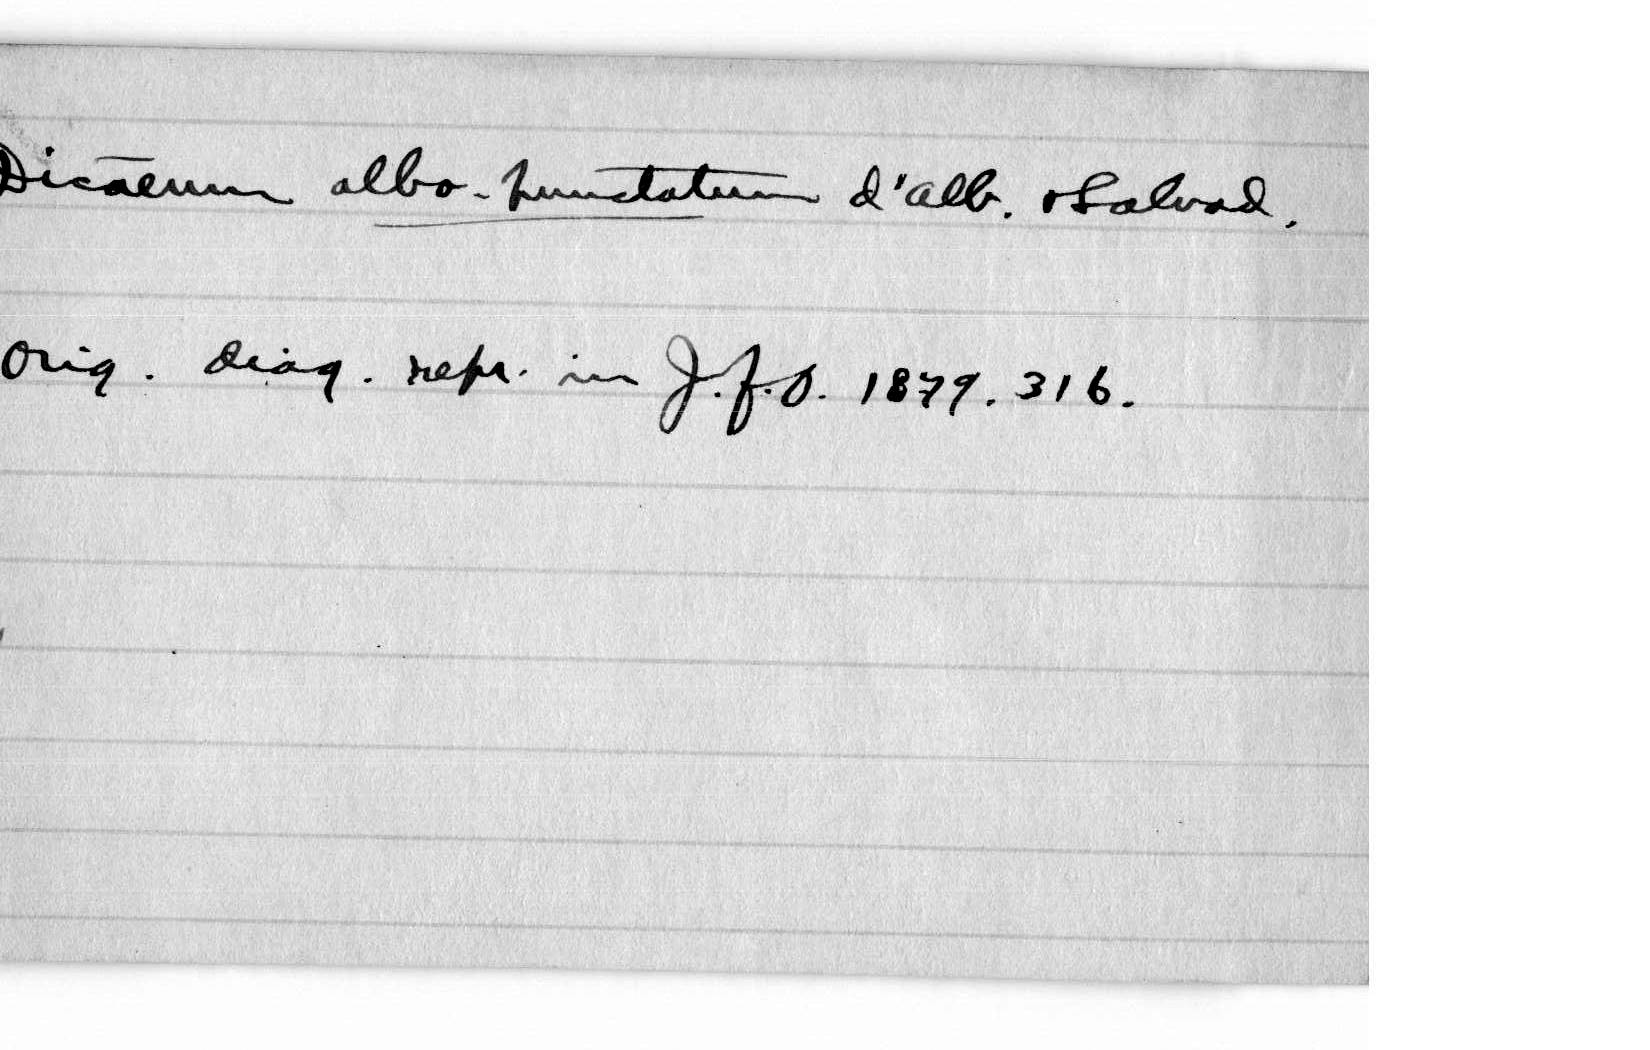 Dicaeum albo-punctatum d'Alb. & Salvad.
Orig. diag. repr. in J.f.O. 1879. 316.